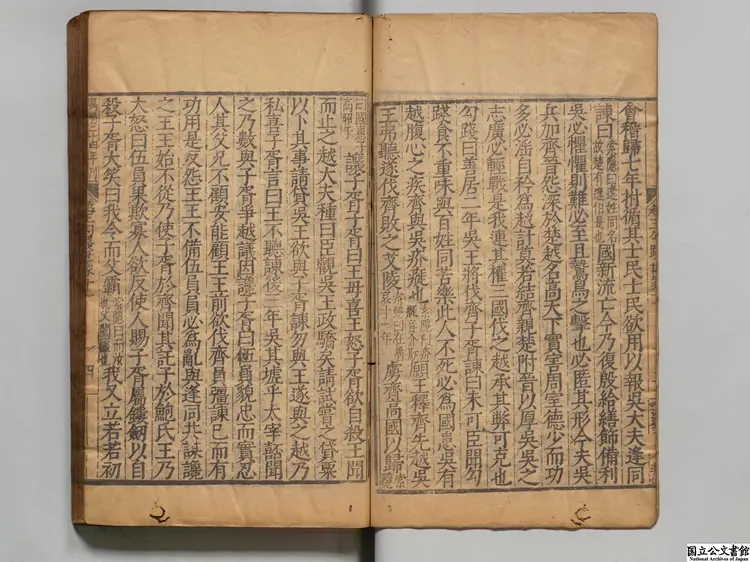 會稽歸七年拊循其士民士民欲用以報吳大夫逢同
諫曰索隱曰逢姓同名故楚有逢伯是也國新流亡今乃復殷給繕飾備利
吳必懼懼則難必至且鷙鳥之擊也必匿其形今夫吳
兵加齊晉怨深於楚越名高天下實害周室德少而功
多必淫自矜為越計莫若結齊親楚附晉以厚吳吳之
志廣必輕戰是我連其權三國伐之越承其弊可克也
句踐曰善居二年吳王將伐齊子胥諫曰未可臣聞句
踐食不重味與百姓同苦樂此人不死必為國患吳有
越腹心之疾齊與吳疥癬也願王釋齊先越吳
王弗聽遂伐齊敗之艾陵哀十一年虜齊高國以歸索隱
曰國惠子高昭子讓子胥子胥曰王毋喜王怒子胥欲自殺王聞
而止之越大夫種曰臣觀吳王政驕矣請試嘗之貸粟
以卜其事請貸吳王欲與子胥諫勿與王遂與之越乃
私喜子胥言曰王不聽諫後三年吳其墟乎太宰嚭聞
之乃數與子胥爭越議因讒子胥曰伍員貌忠而實忍
人其父兄不顧安能顧王王前欲伐齊員彊諫已而有
功用是反怨王王不備伍員員必為亂與逢同共謀讒
之王王始不從乃使子胥於齊聞其託子於鮑氏王乃
大怒曰伍員果欺寡人欲反使人賜子胥屬鏤劒以自
殺子胥大笑曰我令而父霸索隱曰而汝也父闔廬也我又立若若初
国立公文書館
National Archives of Japan